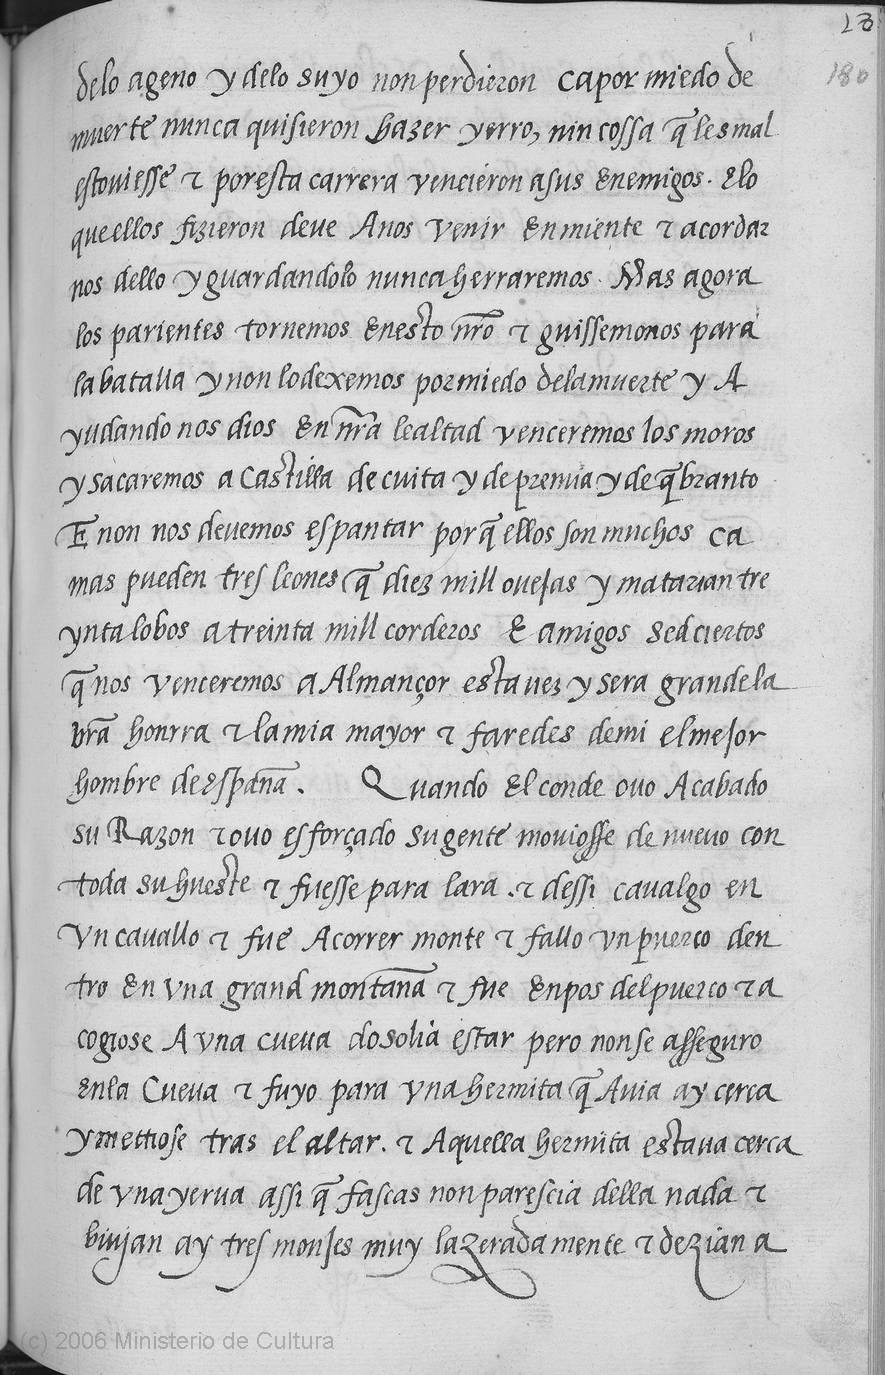 23
180
delo ageno y delo suyo non perdieron capor miedo de
muerte nunca quisieron hazer yerro, nin cossa q̃ les mal
estouiesse τ por esta carrera vencieron asus Enemigos. Elo
que ellos fizieron deve Anos venir Enmiente τ acordar
nos dello y guardandolo nunca herraremos. Mas agora
los parientes tornemos Enesto nr̃o τ guissemonos para
la batalla y non lo dexemos por miedo dela muerte y A
yudando nos dios En nr̃a lealtad venceremos los moros
y sacaremos a Castilla de cuita y de premia y de q̃branto
E non nos devemos espantar porq̃ ellos son muchos ca
mas pueden tres leones q̃ diez mill ovejas y matarian tre
ynta lobos a treinta mill corderos E amigos sed ciertos
q̃ nos venceremos a Almançor esta uez y sera grande la
br̃a honrra τ la mia mayor τ faredes demi el mejor
hombre de españa. Quando El conde ouo Acabado
su Razon τ ovo esforçado su gente mouiosse de nueuo con
toda su hueste τ fuesse para lara. τ dessi caualgo en
Vn cauallo τ fue Acorrer monte τ fallo vn puerco den
tro En vna grand montaña τ fue Enpos del puerco τ a
cogiose A vna cueua do solia estar pero non se asseguro
En la Cueua τ fuyo para vna hermita q̃ Auia ay cerca
y mettiose tras el altar. τ Aquella hermita estaua cerca
de vna yerua assi q̃ fascas non parescia della nada τ
biujan ay tres monjes muy lazeradamente τ dezian a
(c) 2006 Ministerio de Cultura